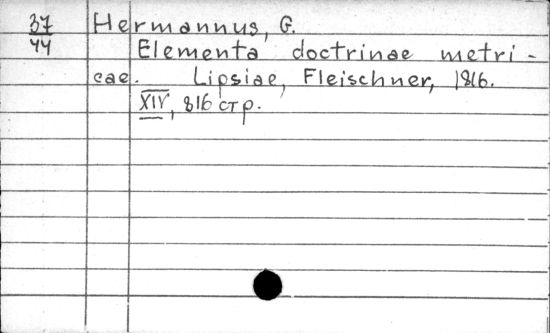 37 Hermannus, G.
44 Elementa doctrinae metri-
cae. Lipsiae, Fleischner, 1816.
XIV, 816 стр.